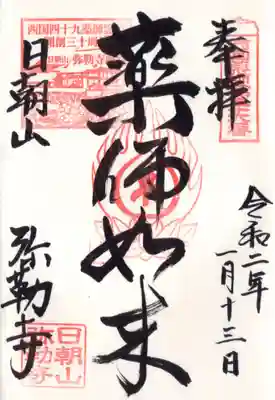 奉拝
令和二年
一月十三日
薬師如来
西国四十九薬師霊場
開創三十周年
日朝山 弥勒寺
日朝山
弥勒寺
日朝山
弥勒寺